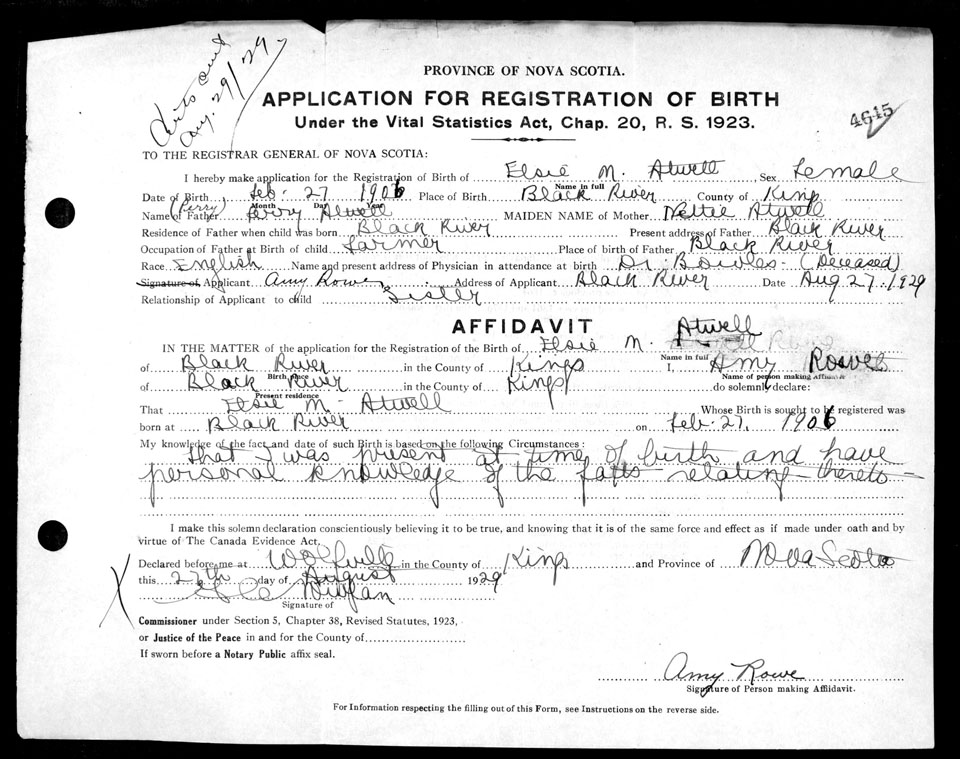 Certs sent
Aug. 29/29
PROVINCE OF NOVA SCOTIA.
APPLICATION FOR REGISTRATION OF BIRTH
Under the Vital Statistics Act, Chap. 20, R. S. 1923.
4645
TO THE REGISTRAR GENERAL OF NOVA SCOTIA:
I hereby make application for the Registration of Birth of Elsie M. Atwell Sex Female
Name in full
Date of Birth Feb. 27 1906 Place of Birth Black River County of Kings
Month Day Year
(Perry)
Name of Father Perry Atwell MAIDEN NAME of Mother Nettie Atwell
Residence of Father when child was born Black River Present address of Father Black River
Occupation of Father at Birth of child farmer Place of birth of Father Black River
Race English Name and present address of Physician in attendance at birth Dr. Bowles - (Deceased)
Signature of Applicant Amy Rowe Address of Applicant Black River Date Aug 27. 1929
Relationship of Applicant to child Sister
AFFIDAVIT
IN THE MATTER of the application for the Registration of the Birth of Elsie M. Atwell
Name in full
of Black River in the County of Kings I, Amy Rowe
Birth place Name of person making Affidavit
of Black River in the County of Kings do solemnly declare:
Present residence
That Elsie M. Atwell Whose Birth is sought to be registered was
born at Black River on Feb. 27, 1906
My knowledge of the fact and date of such Birth is based on the following Circumstances:
That I was present at time of birth and have
personal knowledge of the facts relating thereto
I make this solemn declaration conscientiously believing it to be true, and knowing that it is of the same force and effect as if made under oath and by
virtue of The Canada Evidence Act.
Declared before me at Wolfville in the County of Kings and Province of Nova Scotia
this 27th day of August 1929
Signature of
Commissioner under Section 5, Chapter 38, Revised Statutes, 1923,
or Justice of the Peace in and for the County of
If sworn before a Notary Public affix seal.
Amy Rowe
Signature of Person making Affidavit.
For Information respecting the filling out of this Form, see Instructions on the reverse side.